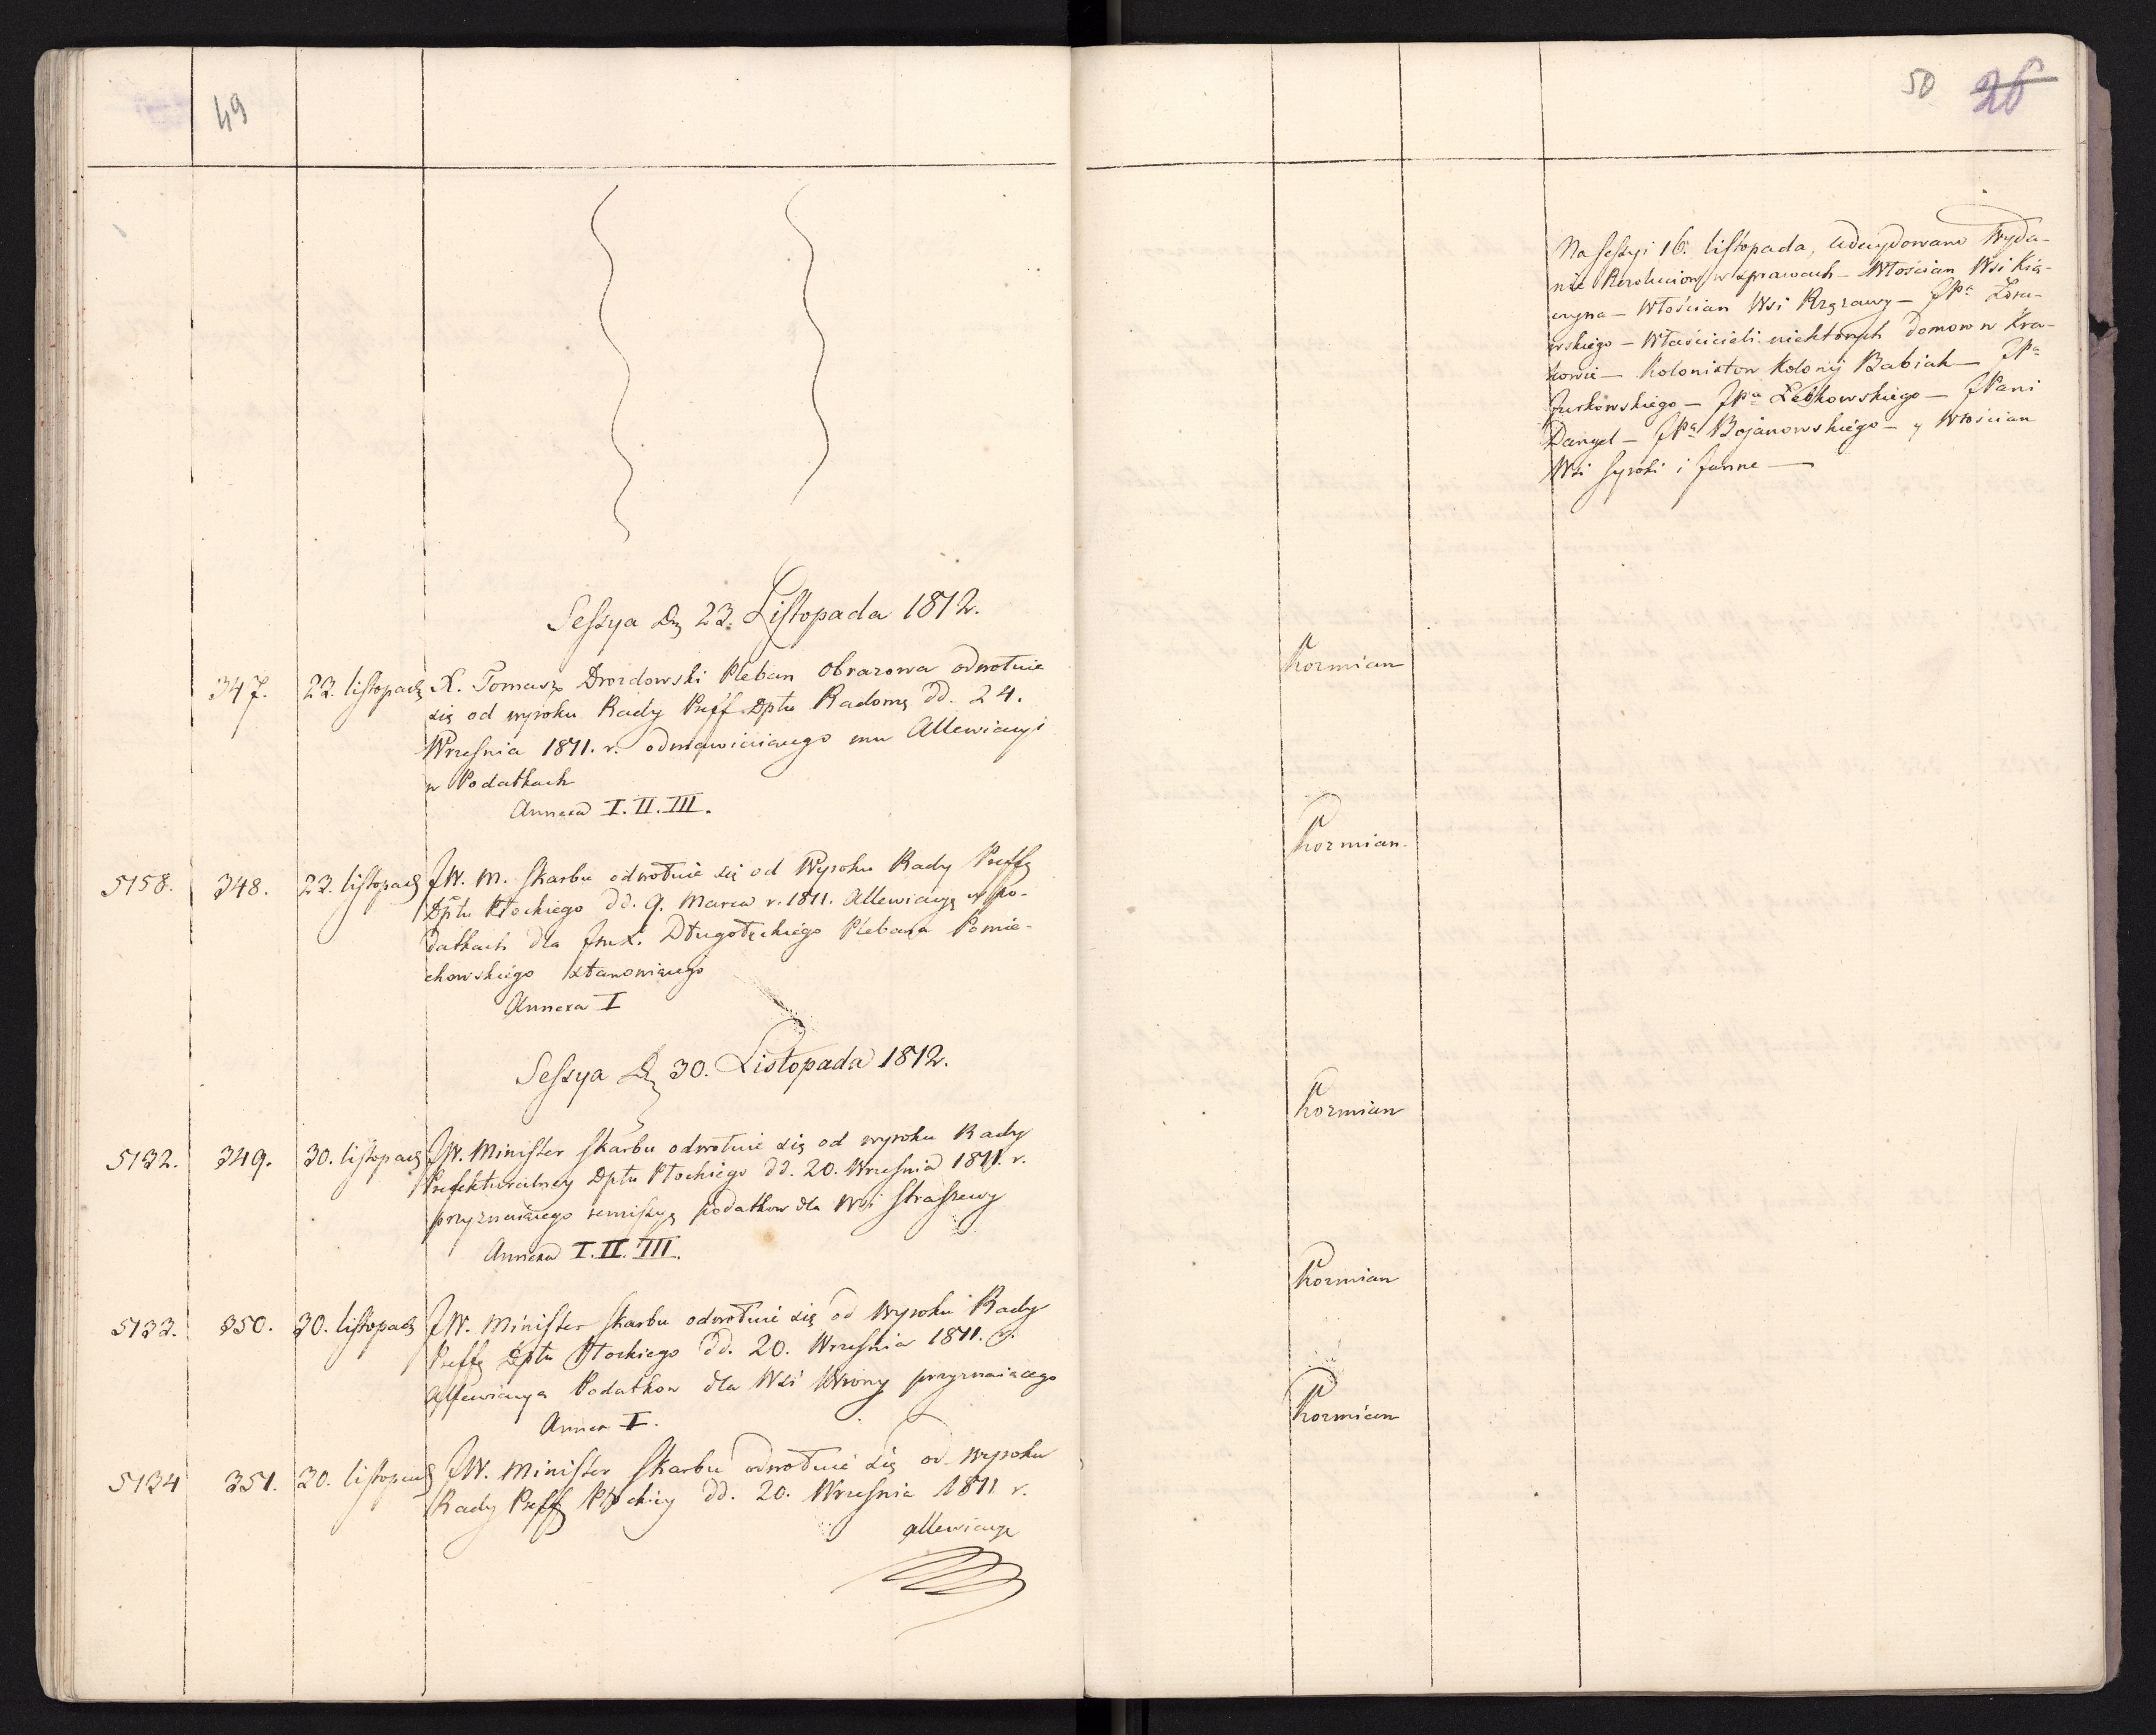 49
Sessya Dn 23. Listopada 1812.
347. 23. listopada X. Tomasz Drozdowski Pleban Obrazowa odwołuie
się od wyroku Rady Preff Dptu Radomg dd. 24.
Września 1811. r. odmawiaiącego mu Allewiacyi
w Podatkach
Annexa I. II. III.
5158. 348. 23. listopada JW. M. Skarbu odwołuie się od Wyroku Rady Preffg
Dptu Płockiego dd. 9. Marca r. 1811. Allewiacyą w po-
datkach dla JmX. Długołęckiego Plebana Pomie-
chowskiego stanowiącego
Annexa I
Sessya Dn 30. Listopada 1812.
5132. 349. 30. listopada JW. Minister Skarbu odwołuie się od wyroku Rady
Prefekturalney Dptu Płockiego dd. 20. Września 1811. r.
przyznaiącego remissyą podatkow dla Wsi Straszewy
Annexa I. II. III.
5133. 350. 30. listopada JW. Minister Skarbu odwołuie się od Wyroku Rady
Preffg Dptu Płockiego dd. 20. Września 1811. r.
Allewiacya Podatkow dla Wsi Wrony przyznaiącego
Annex I.
5134 351. 30. listopada JW. Minister Skarbu odwołuie się od Wyroku
Rady Preff Płockiey dd. 20. Września 1811 r.
allewiacyę
50 26
Na Sessyi 16. listopada, udecydowano Wyda-
nie Rezoluciow w sprawach – Włościan Wsi Kią-
czyna – Włościan Wsi Krązawy – JPa
wskiego – Właścicieli niektorych Domow w Kra-
kowie – Kolonistow Kolonij Babiak – JPa
Jurkowskiego – JPa Lelkowskiego – JPani
Dangel – JPa Bojanowskiego – y Włościan
Wsi i
Kozmian
Kozmian.
Kozmian
Kozmian
Kozmian